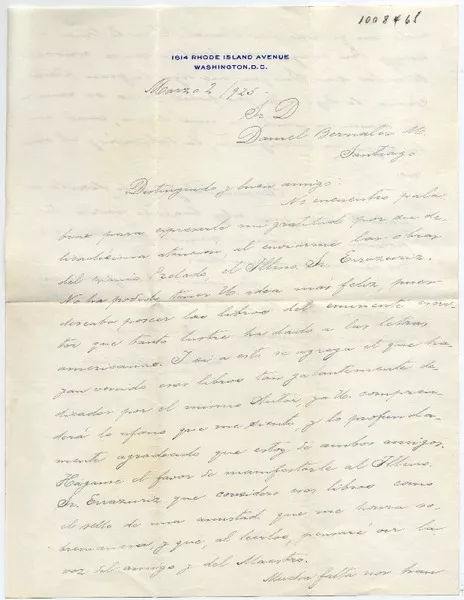 1008468
1614 RHODE ISLAND AVENUE
WASHINGTON, D.C.
Marzo 2/925.
Sr D
Daniel Bernales M.
Santiago
Distinguido y buen amigo:
No encuentro pala
bras para expresarle mi gratitud por su de
licadísima atención al enviarme las obras
del eximio Prelado, el Illmo. Sr. Errázuriz.
No ha podido tener Ud. idea más feliz, pues
deseaba poseer los libros del eminente escri
tor que tanto lustre ha dado a las letras
americanas. I si a esto se agrega el que ha
yan venido esos libros tan galantemente de
dicados por el mismo Autor, ya Ud. compren
derá lo ufano que me siento, y lo profunda
mente agradecido que estoy de ambos amigos.
Hágame el favor de manifestarle al Illmo.
Sr. Errázuriz que considero esos libros como
el sello de una amistad que me honra so
bremanera, y que, al leerlos, pensaré oir la
voz del amigo y del Maestro.
Mucha falta nos han